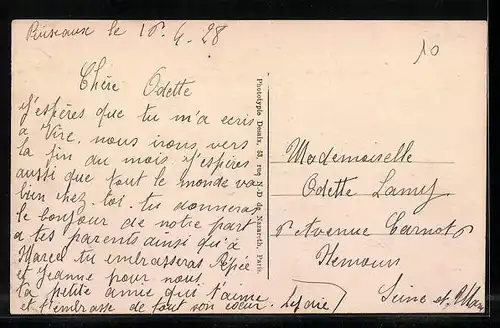 Puiseaux le 16.4.28
Chère Odette
J'espères que tu m'a ecris
a Vire, nous irons vers
la fin du mois j'espères
aussi que tout le monde va
bien chez toi. tu donneras
le bonjour de notre part
a tes parents ainsi qu'à
Marcel tu embrasseras Pépée
et Jeanne pour nous
ta petite amie qui t'aime
et t'embrasse de tout son coeur.
Phototypie Desaix, 53, rue N.-D. de Nazareth, Paris.
10
Mademoiselle
Odette Lamy
Avenue Carnot
Nemours
Seine et Marne